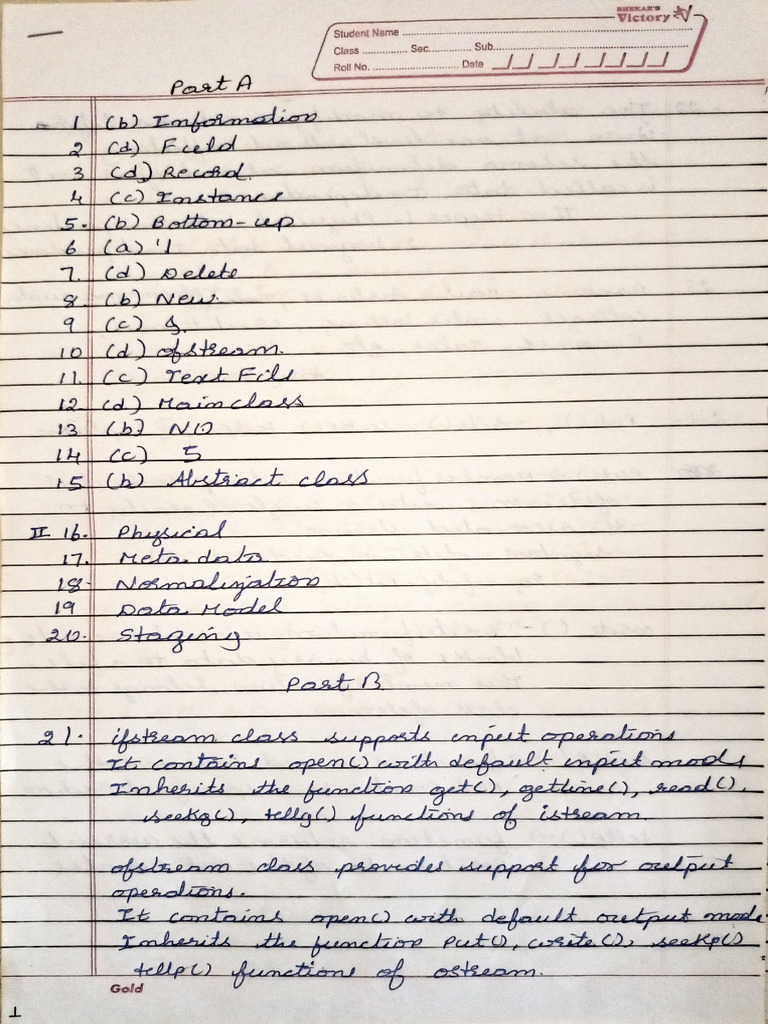 SHEKAR'S
Victory
Student Name
Class Sec. Sub.
Roll No. Date
Part A
1 (b) Information
2 (d) Field
3 (d) Record.
4 (c) Instance
5. (b) Bottom-up
6 (a) '1
7. (d) Delete
8. (b) New.
9 (c) &.
10 (d) ofstream.
11. (c) Text File
12. (d) Main class
13 (b) NO
14 (c) 5
15 (b) Abstract class
II 16. Physical
17. Meta data
18. Normalization
19 Data Model
20. Staging
Part B
21. ifstream class supports input operations
It contains open() with default input mode
Inherits the function get(), getline(), read(),
seekg(), tellg() functions of istream.
ofstream class provides support for output
operations.
It contains open() with default output mode
Inherits the function put(), write(), seekp()
tellp() functions of ostream.
Gold
1